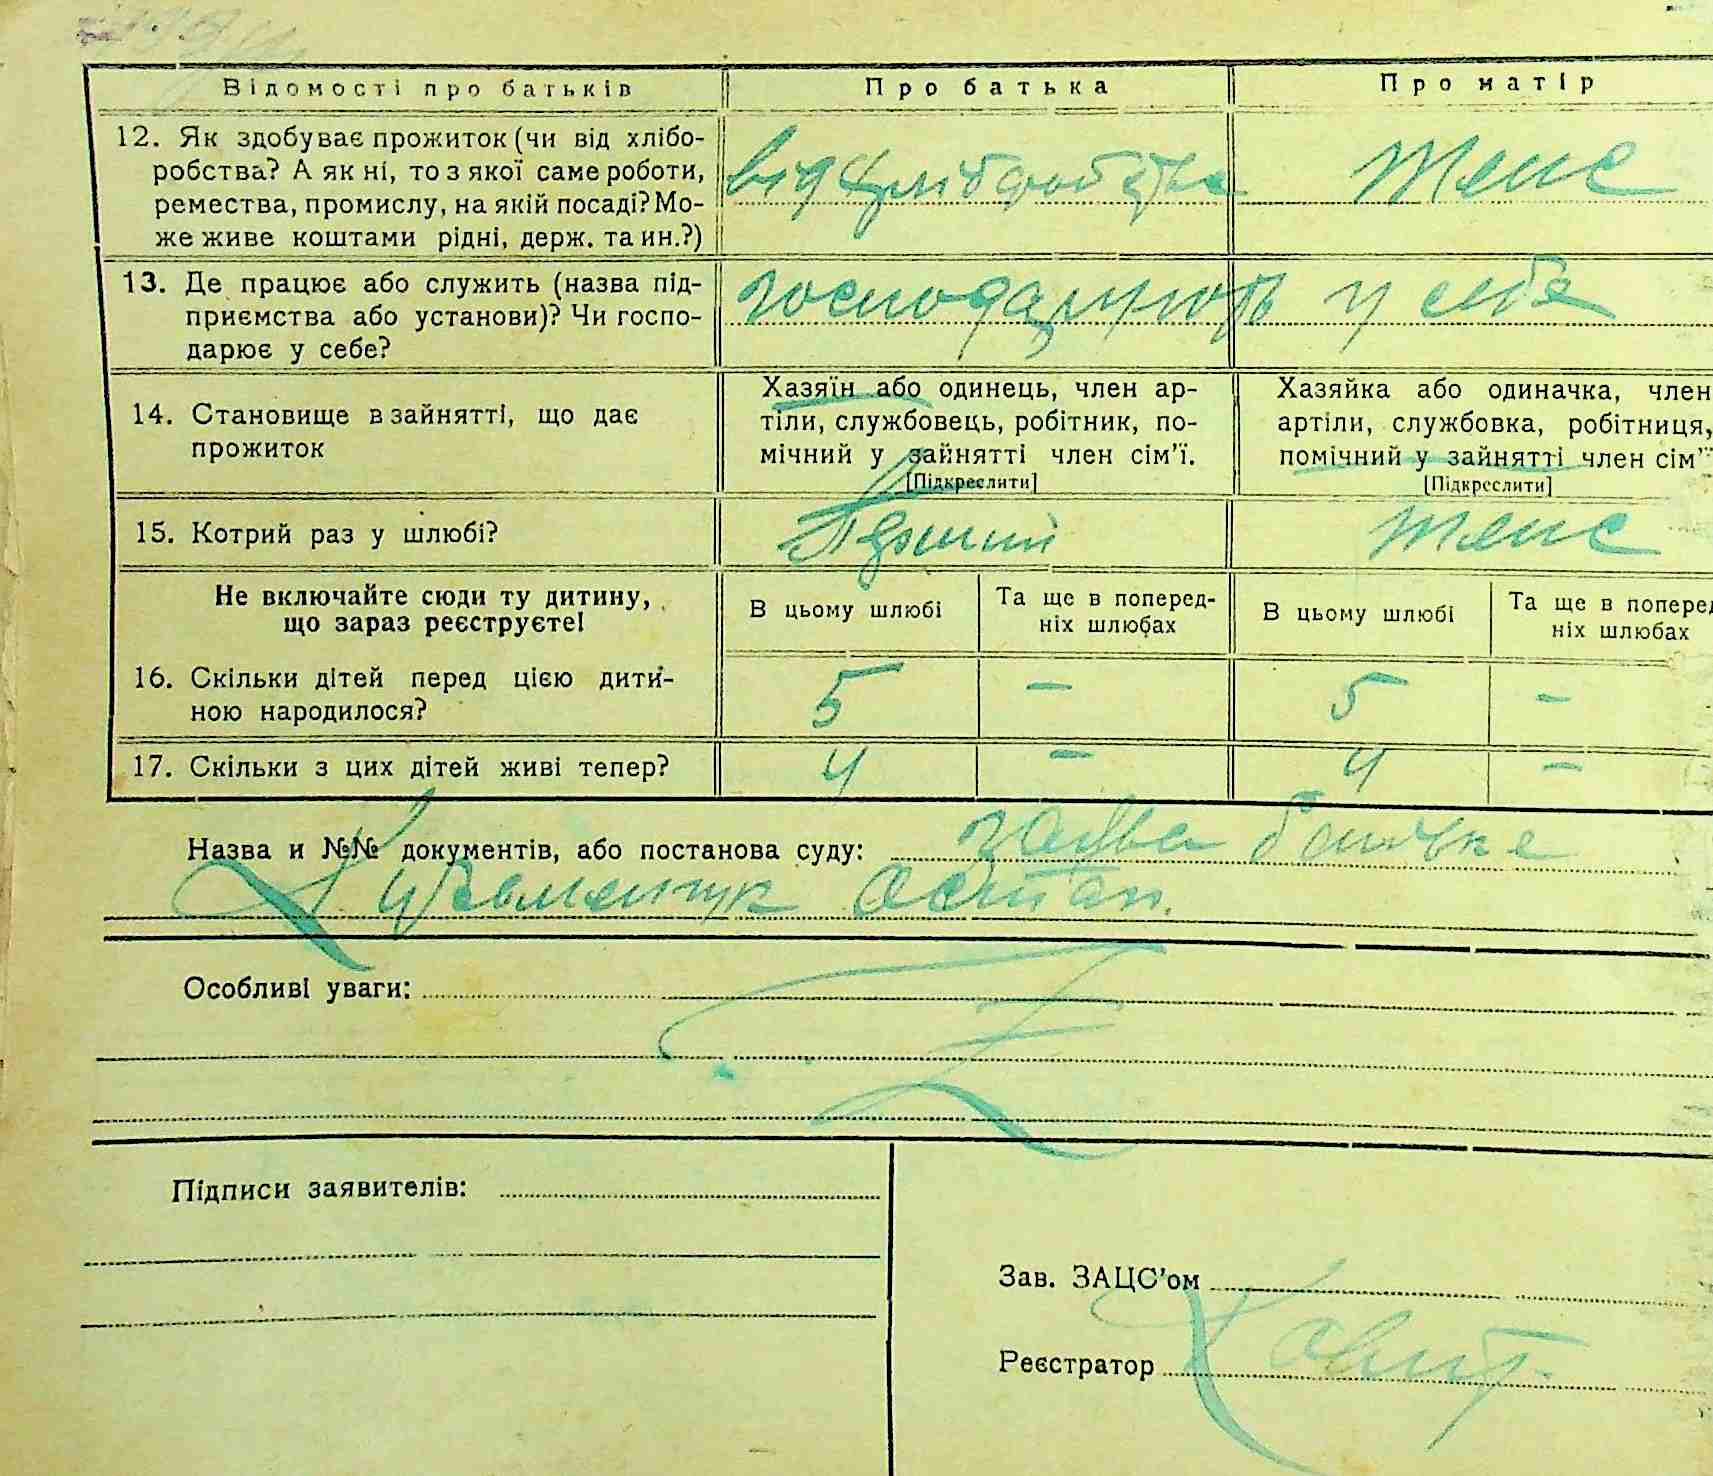 Відомості про батьків Про батька Про матір
12. Як здобуває прожиток (чи від хлібо-
робства? А як ні, то з якої саме роботи,
ремества, промислу, на якій посаді? Мо-
же живе коштами рідні, держ. та ин.?)
від хліборобства теж
13. Де працює або служить (назва під-
приємства або установи)? Чи госпо-
дарює у себе?
господарюють у себе
14. Становище в зайнятті, що дає
прожиток
Хазяїн або одинець, член ар-
тіли, службовець, робітник, по-
мічний у зайнятті член сім'ї.
[Підкреслити]
Хазяйка або одиначка, член
артіли, службовка, робітниця,
помічний у зайнятті член сім'ї
[Підкреслити]
15. Котрий раз у шлюбі? Перший
Не включайте сюди ту дитину,
що зараз реєструєте!
В цьому шлюбі
Та ще в поперед-
ніх шлюбах
В цьому шлюбі
Та ще в поперед
ніх шлюбах
16. Скільки дітей перед цією дити-
ною народилося?
5 — 5 —
17. Скільки з цих дітей живі тепер? 4 — 4 —
Назва и №№ документів, або постанова суду: заява батька
Остап.
Особливі уваги:
Підписи заявителів:
Зав. ЗАЦС'ом
Реєстратор